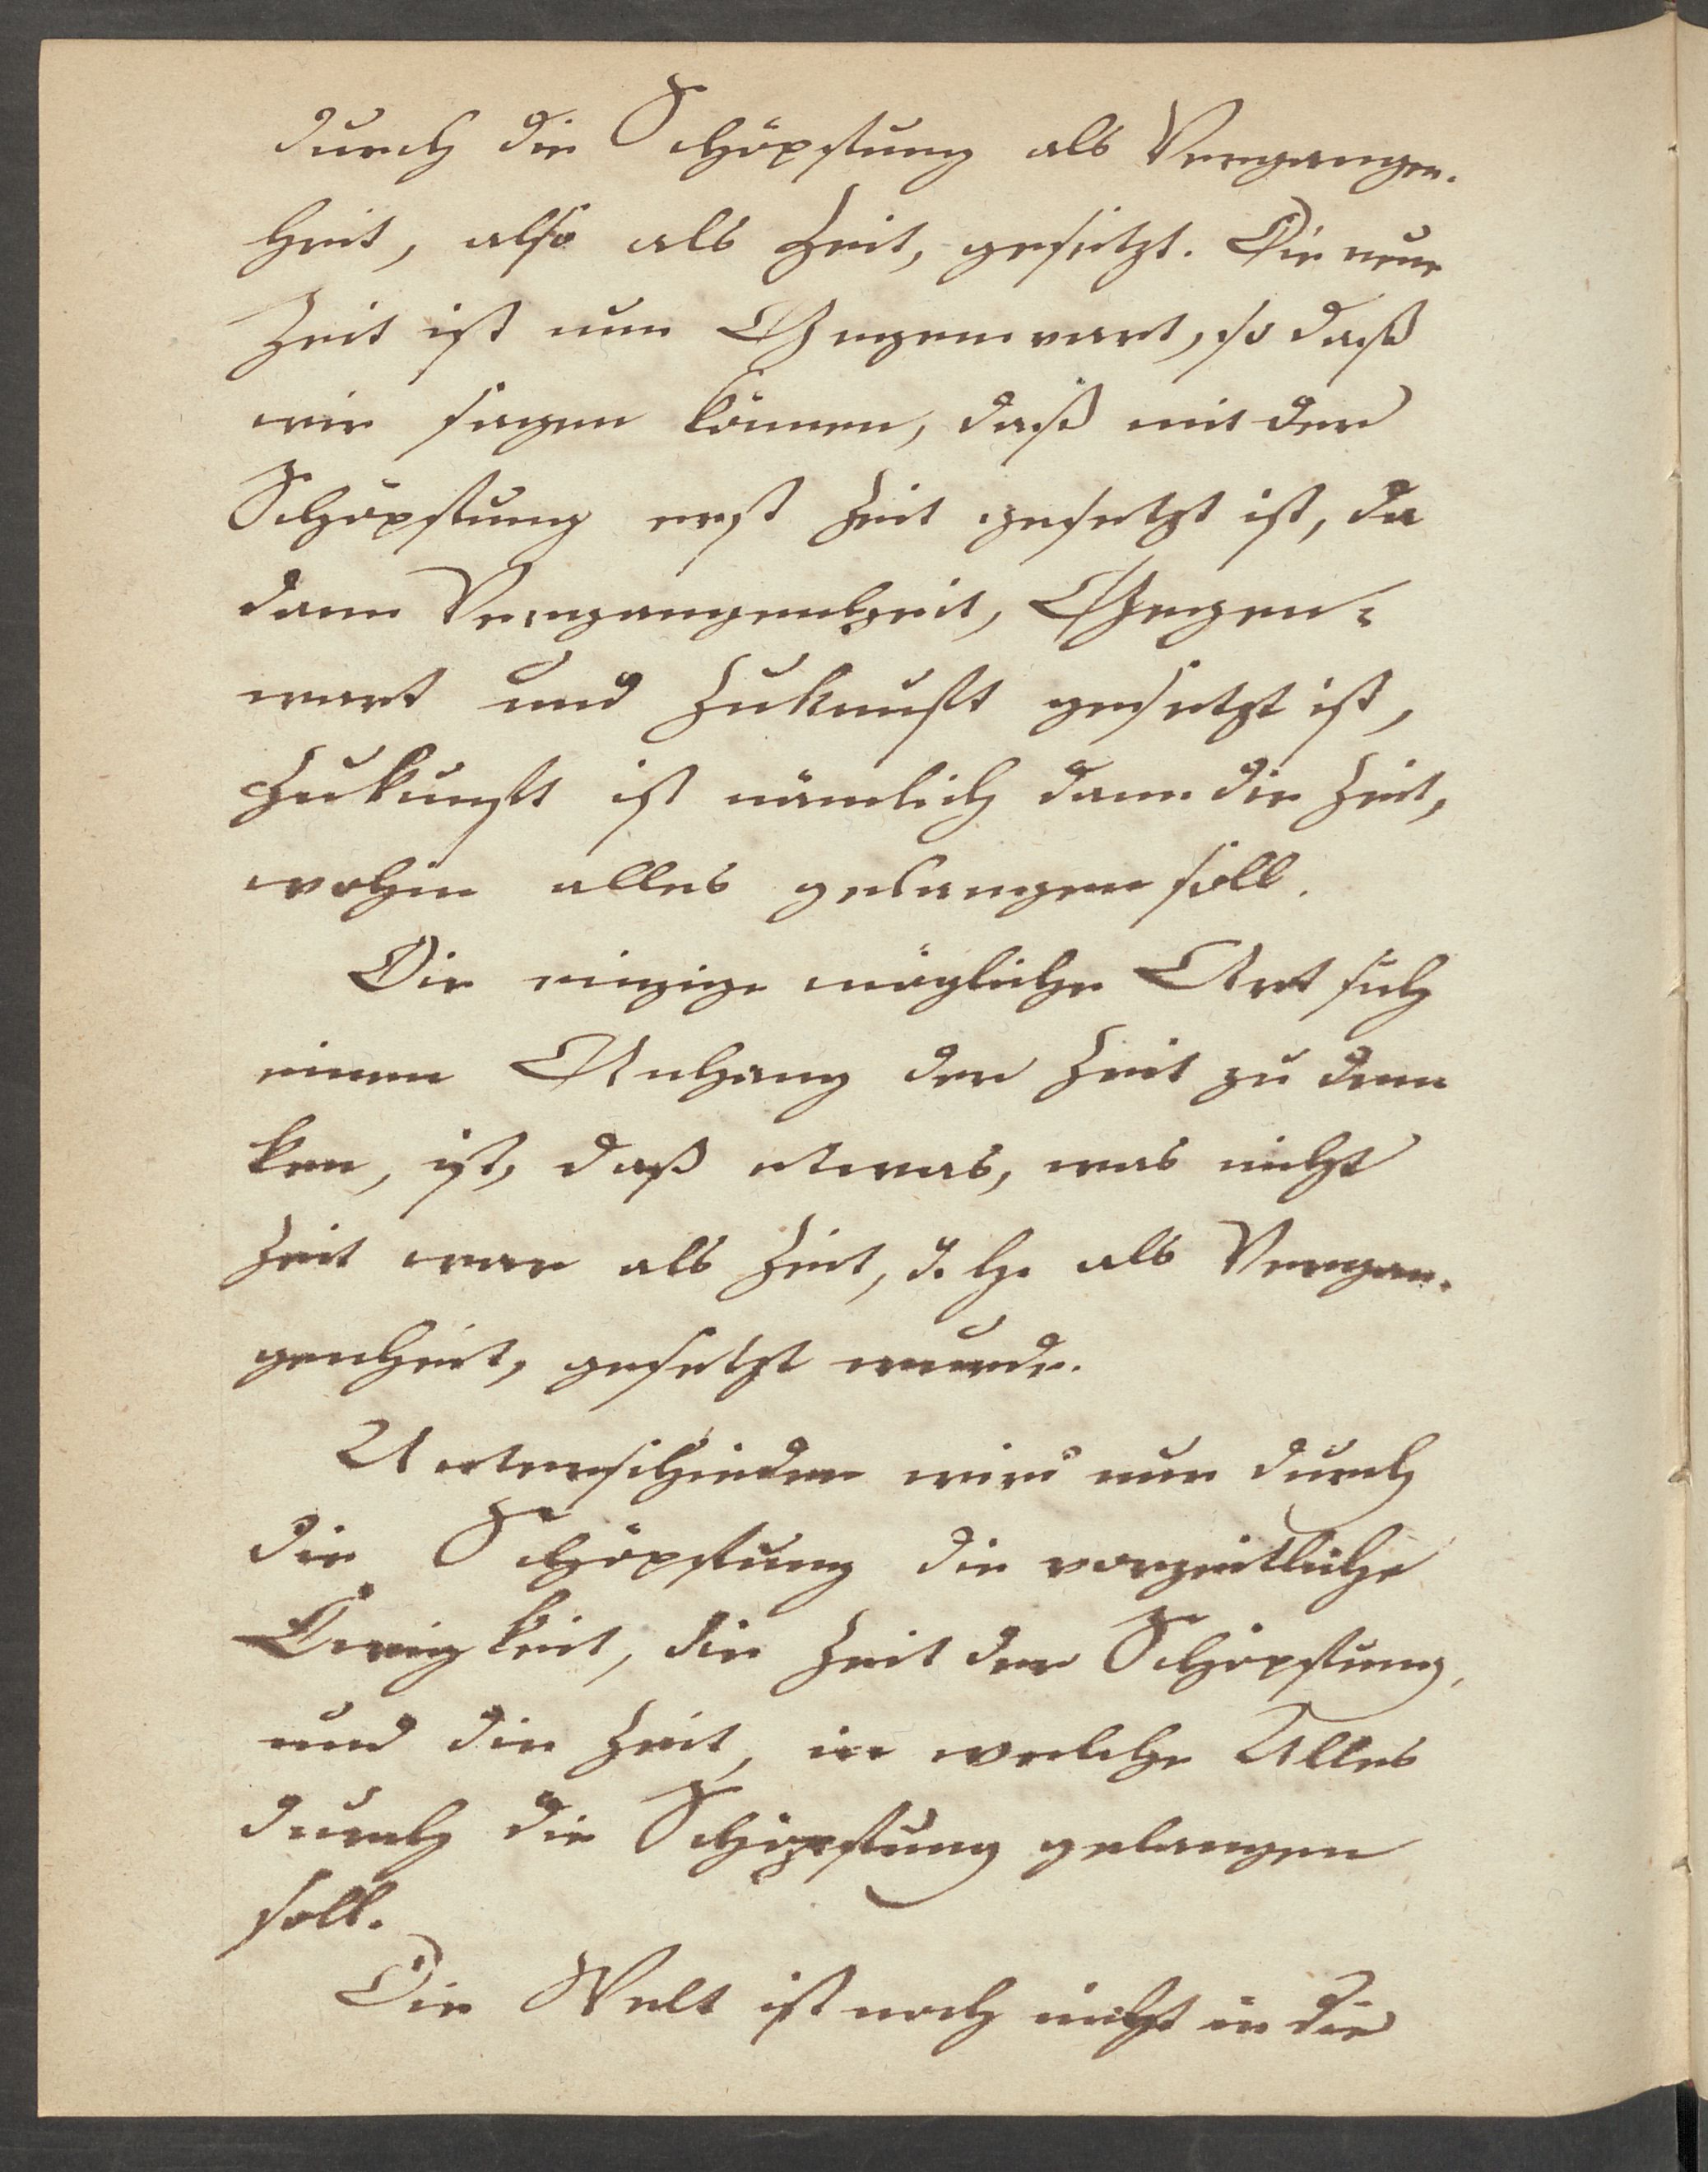 durch die Schöpfung als Vergangen-
heit, also als Zeit, gesetzt. Die neue
Zeit ist nun Gegenwart, so daß
wir sagen können, daß mit der
Schöpfung erst Zeit gesetzt ist, da
dann Vergangenheit, Gegen-
wart und Zukunft gesetzt ist,
Zukunft ist nämlich dann die Zeit,
wohin alles gelangen soll.
Die einzige mögliche Art sich
einen Anfang der Zeit zu den
ken, ist, daß etwas, was nicht
Zeit war als Zeit, d. h. als Vergan-
genheit, gesetzt wurde.
Unterschieden wird nun durch
die Schöpfung die vorzeitliche
Ewigkeit, die Zeit der Schöpfung,
und die Zeit, in welche Alles
durch die Schöpfung gelangen
soll.
Die Welt ist noch nicht in die